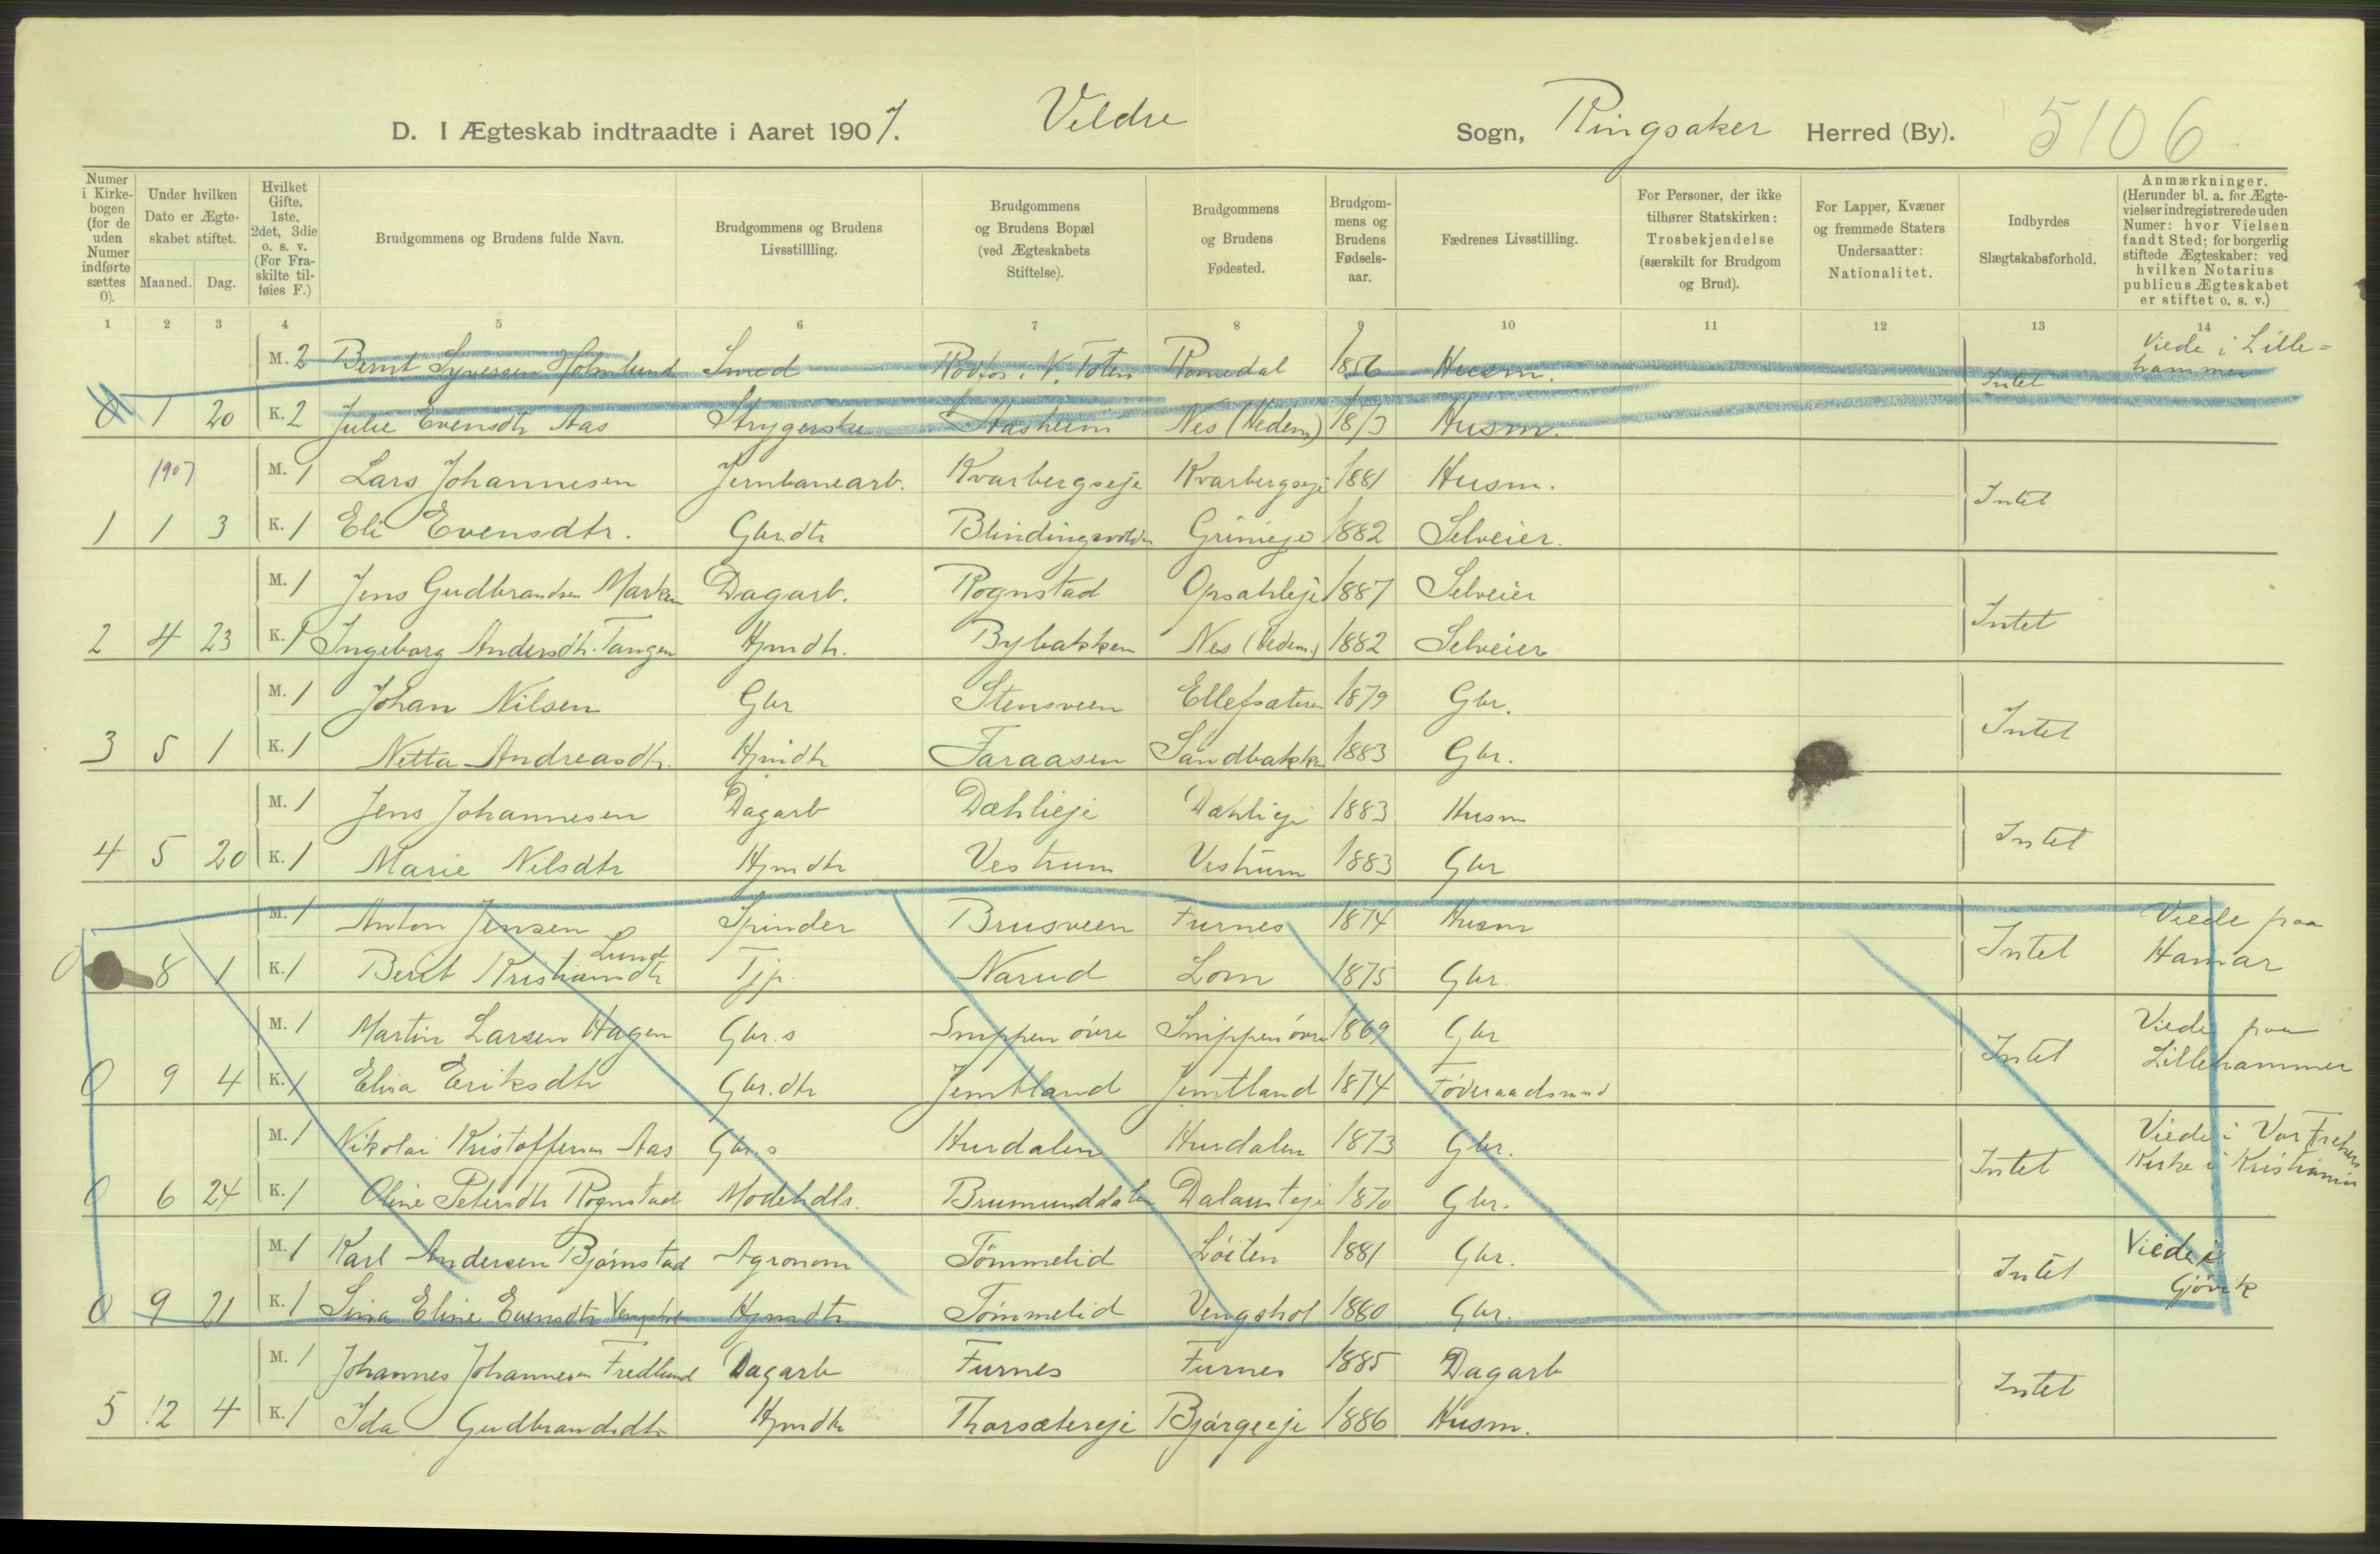 D. I Ægteskab indtraadte i Aaret 1907. Veldre Sogn, Ringsaker Herred (By). 5106
Numer i Kirke-bogen (for de uden Numer indførte sættes 0).
Under hvilken Dato er Ægte-skabet stiftet.
Maaned. Dag.
Hvilket Gifte. 1ste, 2det, 3die o. s. v. (For Fra-skilte til-føies F.)
Brudgommens og Brudens fulde Navn.
Brudgommens og Brudens Livsstillling.
Brudgommens og Brudens Bopæl (ved Ægteskabets Stiftelse).
Brudgommens og Brudens Fødested.
Brudgom-mens og Brudens Fødsels-aar.
Fædrenes Livsstilling.
For Personer, der ikke tilhører Statskirken: Trosbekjendelse (særskilt for Brudgom og Brud).
For Lapper, Kvæner og fremmede Staters Undersaatter: Nationalitet.
Indbyrdes Slægtskabsforhold.
Anmærkninger. (Herunder bl. a. for Ægte-vielser indregistrerede uden Numer: hvor Vielsen fandt Sted; for borgerlig stiftede Ægteskaber: ved hvilken Notarius publicus Ægteskabet er stiftet o. s. v.)
1 2 3 4 5 6 7 8 9 10 11 12 13 14
M. 2 Bernt Syversen Holmlund Smed i V. Toten Romedal 1856 Husm. Intet Viede i Lille=hammer
0 1 20 K. 2 Julie Evensdtr Aas Strygerske Aasheim Nes (Hedem) 1873 Husm.
1907 M. 1 Lars Johannesen Jernbanearb. Kvarbergseje Kvarbergseje 1881 Husm. Intet
1 1 3 K. 1 Eli Evensdtr. Gbr.dtr Grimeje 1882 Selveier.
M. 1 Jens Gudbrandsen Dagarb. Rognstad Opsahleje 1887 Selveier Intet
2 4 23 K. 1 Ingeborg Andersdtr. Tangen Hjmdtr. Bybakken Nes (Hedem.) 1882 Selveier
M. 1 Johan Nilsen Gbr Stensveen Ellefsæteren 1879 Gbr. Intet
3 5 1 K. 1 Netta Andreasdtr. Hjmdtr Faraasen Sandbakken 1883 Gbr.
M. 1 Jens Johannesen Dagarb Dæhlieje Dæhlieje 1883 Husm Intet
4 5 20 K. 1 Marie Nilsdtr Hjmdtr Vestrum Vestrum 1883 Gbr
M. 1 Anton Jensen Spinder Brusveen Furnes 1874 Husm Intet Viede paa Hamar
0 8 1 K. 1 Berit Kristiansdtr Lund Tjp. Narud Lom 1875 Gbr
M. 1 Martin Larsen Hagen Gbr.s Snippen övre Snippen övre 1869 Gbr Intet Viede paa Lillehammer
0 9 4 K. 1 Elisa Eriksdtr Gbr.dtr Jemtland Jemtland 1874 Föderaadsmand
M. 1 Nikolai Kristoffersen Aas Gbr.s Hurdalen Hurdalen 1873 Gbr. Intet Viede i Vor Frelsers Kirke i Kristiania
0 6 24 K. 1 Oline Petersdtr Rognstad Modehdls. Brumunddalen 1870 Gbr.
M. 1 Karl Andersen Bjørnstad Agronom Tömmelid Löiten 1881 Gbr. Intet Viede i Gjövik
0 9 21 K. 1 Eline Evensdtr Hjmdtr Tömmelid Vengshol 1880 Gbr.
M. 1 Johannes Johannesen Fredlund Dagarb Furnes Furnes 1885 Dagarb Intet
5 12 4 K. 1 Ida Gudbrandsdtr Hjmdtr Thorsætereje Bjørgeeje 1886 Husm.